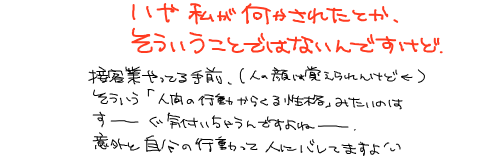 いや 私が何かされたとか、
そういうことではないんですけど.
接客業やってる手前、(人の顔は覚えられんけど←)
そういう「人間の行動からくる性格」みたいのは
すーーぐ気付いちゃうんですよねーー.
意外と自分の行動って人にバレてますよい